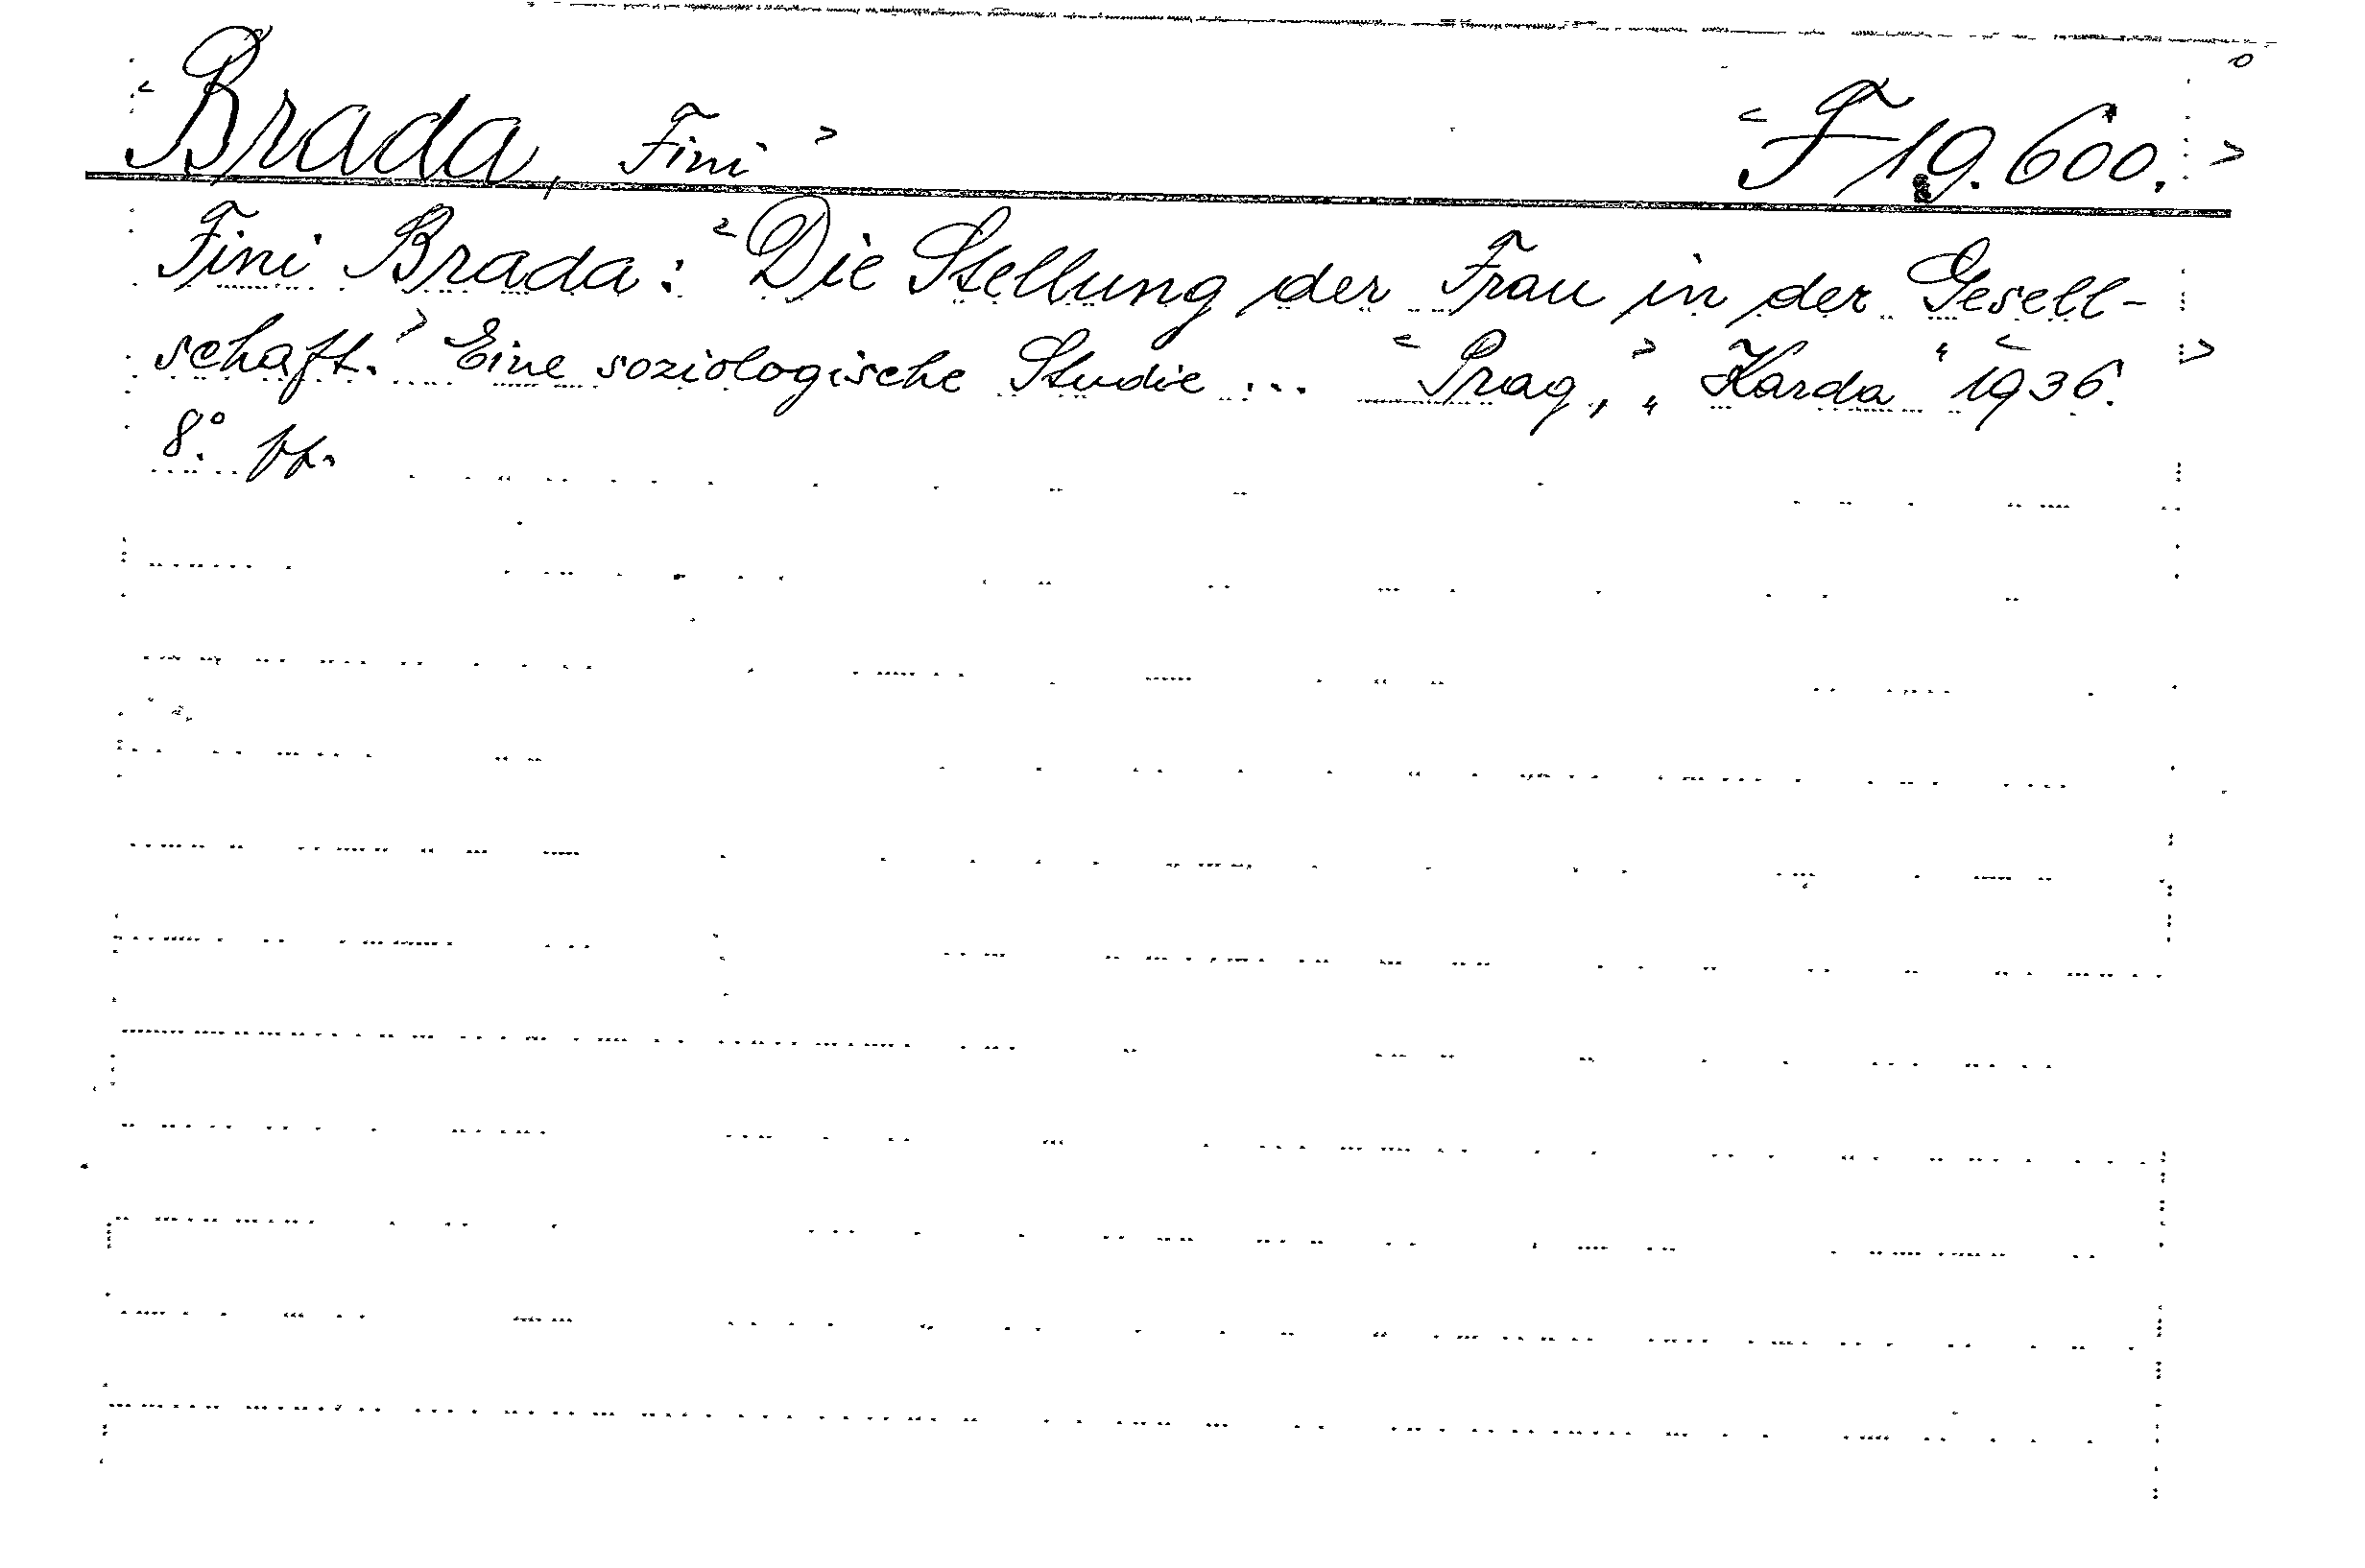 <Brada, Fini> <F 19.600.>
Fini Brada: <Die Stellung der Frau in der Gesell-
schaft.> Eine soziologische Studie ... <Prag,> „Karda“ <1936.>
8°. pp.